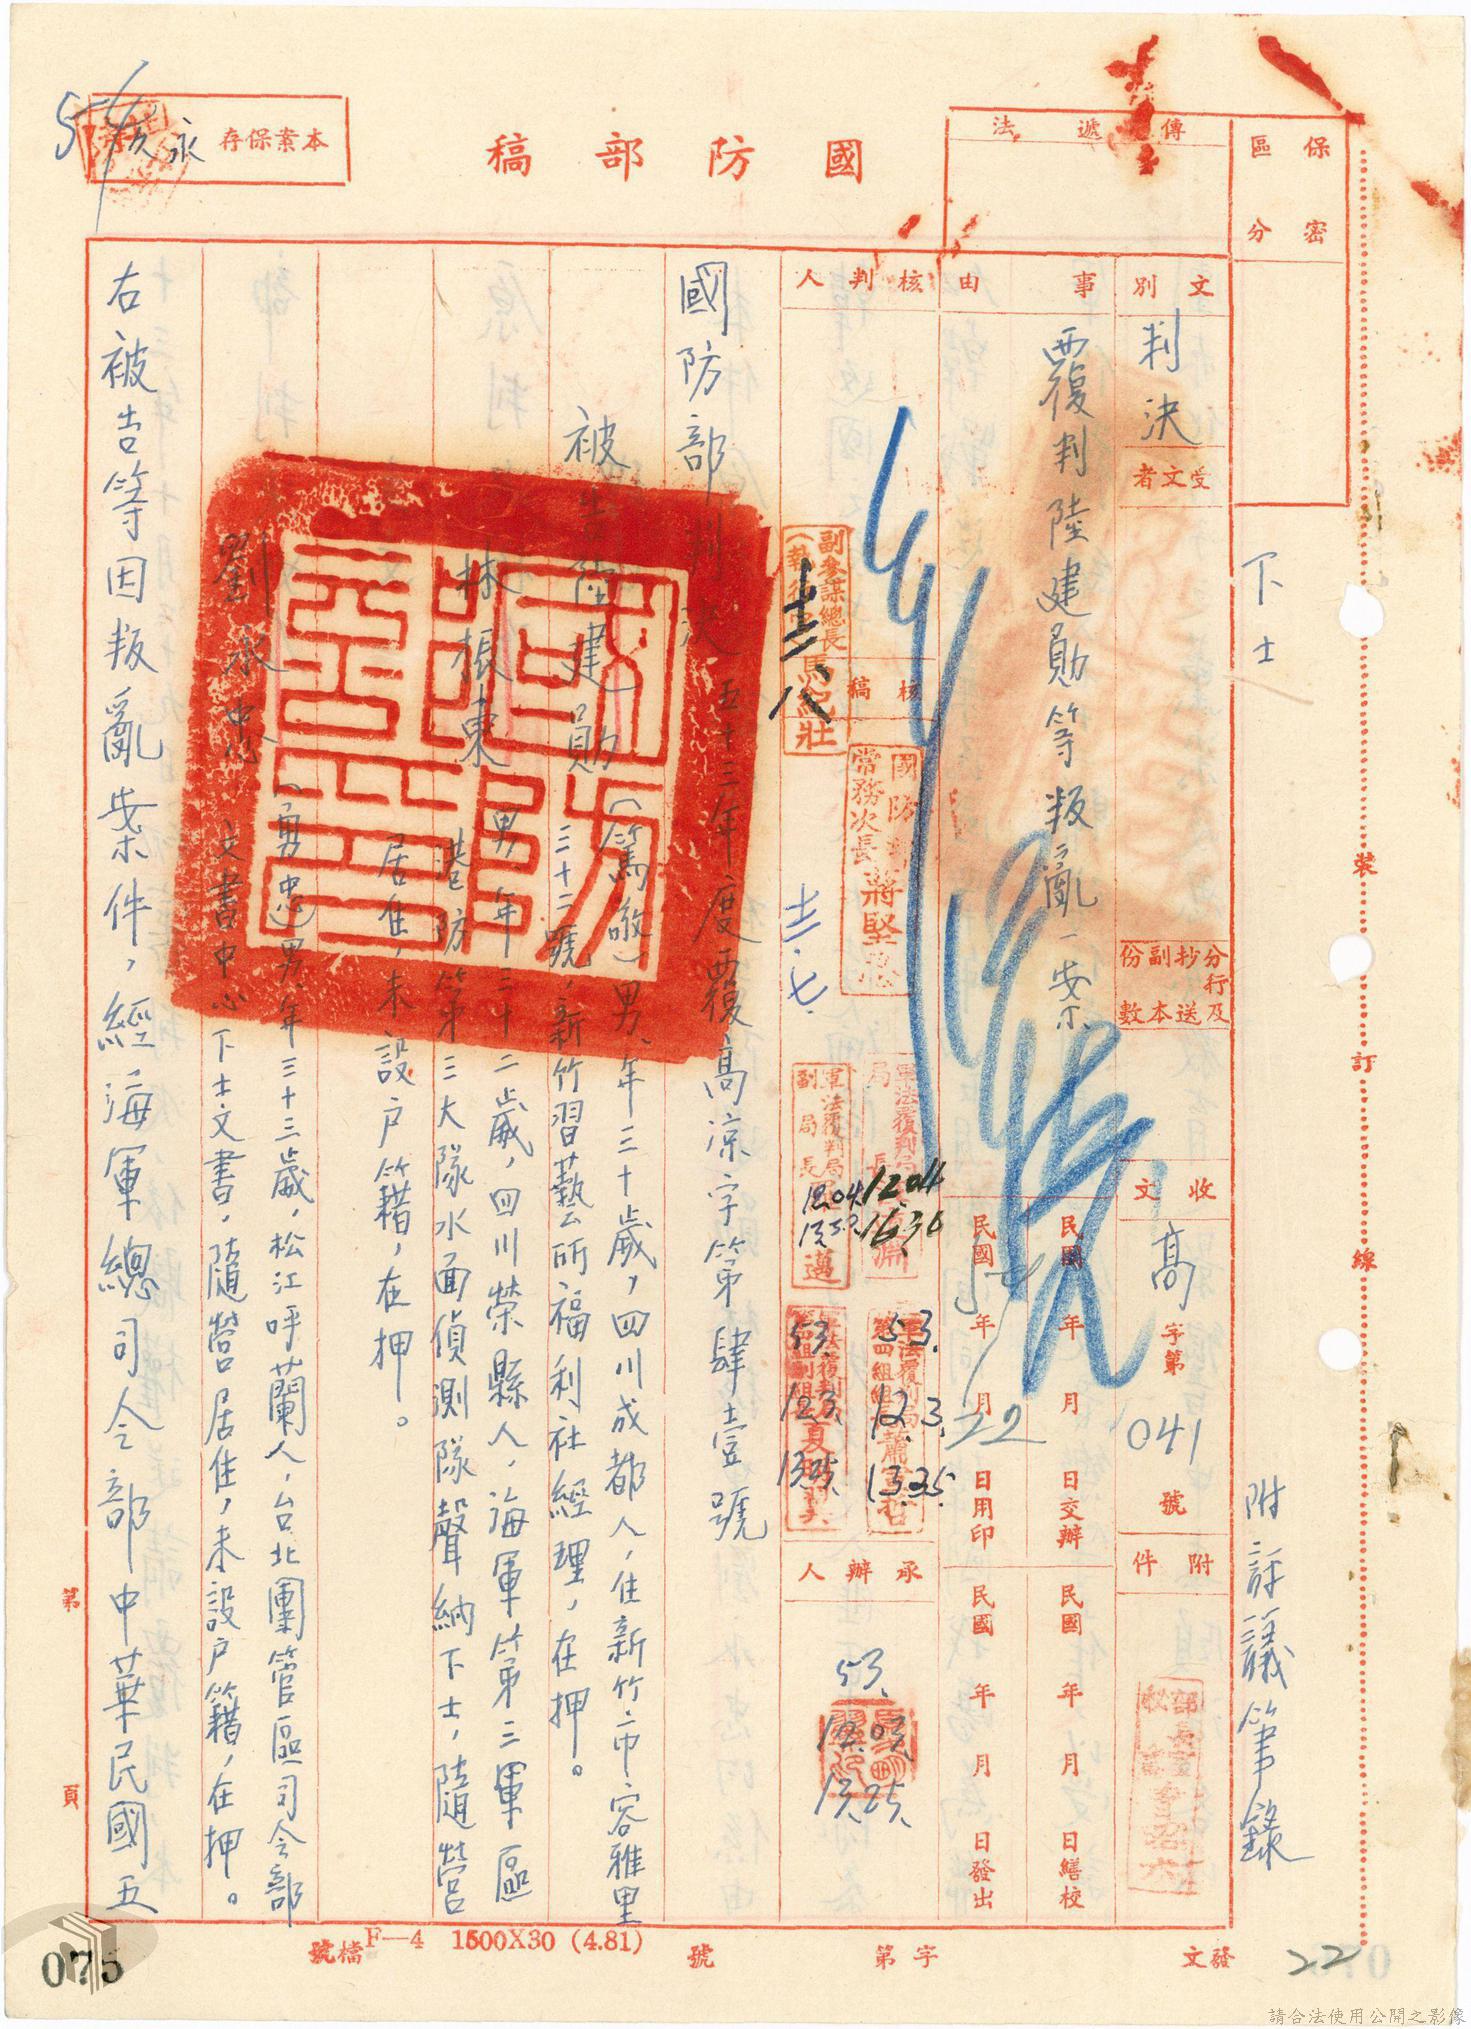 國防部稿
本案保存
永久
傳遞法
保密
區分
下士
附評議筆錄
文別
判決
受文者
分行及抄送副本份數
收文
高
字第
041
號
附件
事由
覆判陸建勛等叛亂一案
民國 年 月 日交辦
民國 年 月 日繕校
民國 年 月 22 日用印
民國 年 月 日發出
核判人
副參謀總長
(執行官)
馬紀壯
十二、八
核稿
國防部
常務次長
蔣堅忍
十二、七、
軍法覆判局
局長
12.04
16.30
軍法覆判局
副局長
邁
12.04
軍法覆判局
第四組組長
53.
12.3.
13.35.
53.
12.3.
承辦人
53.
12.03.
13.25.
國防部判決 五十三年度覆高涼字第肆壹號
被告陸建勛(篤敬)男、年三十歲,四川成都人,住新竹市容雅里
三十二號,新竹習藝所福利社經理,在押。
林振東 男、年三十二歲,四川榮縣人,海軍第三軍區
港防第三大隊水面偵測隊聲納下士,隨營
居住,未設戶籍,在押。
劉永中(勇忠)男、年三十三歲,松江呼蘭人,台北團管區司令部
文書中心下士文書,隨營居住,未設戶籍,在押。
右被告等因叛亂案件,經海軍總司令部中華民國五
裝
訂
線
第
頁
檔號
F—4 1500X30 (4.81)
發文 字第 號
22
075
請合法使用公開之影像